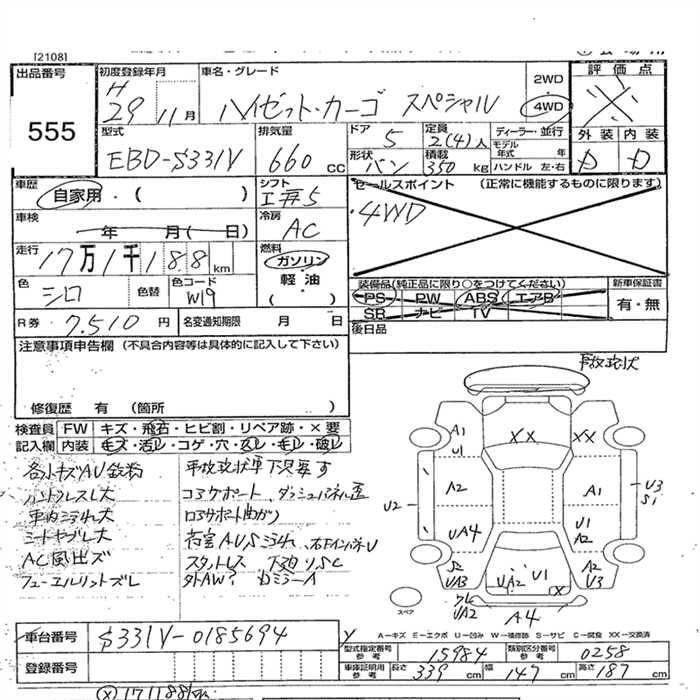 [2108]
出品番号
555
初度登録年月
H 29 11月
車名・グレード
ハイゼット・カーゴ スペシャル
2WD
4WD
評価点
外装 内装
D D
型式
EBD-S331V
排気量
660 cc
ドア
5
定員
2(4)人
ディーラー・並行
モデル年式 年
形状
バン
積載
350 kg
ハンドル 左・右
車歴
自家用・( )
シフト
車検
年 月( 日)
冷房
AC
走行
17万1千188 km
燃料
ガソリン
軽油
( )
色
シロ
色替
色コード
W19
R券 7,510円
名変通知期限 月 日
セールスポイント (正常に機能するものに限ります)
・4WD
装備品(純正品に限り○をつけてください)
PS PW ABS エアB
SR ナビ TV
新車保証書
有・無
後日品
注意事項申告欄 (不具合内容等は具体的に記入して下さい)
修復歴 有 (箇所 )
事故現状
検査員記入欄
FW キズ・飛石・ヒビ割・リペア跡・×要
内装 キズ・汚レ・コゲ・穴・欠レ・モレ・破レ
各小キズAU
ハンドルスレ大
車内ヨゴレ大
シートヤブレ大
AC風出ズ
事故現状車下見要す
コアサポート、ダッシュパネル歪
ロアサポート曲がり
荷室AUSヨゴレ、右FインパネU
スタットレス 下廻りSC
外AW? DミラーA
A1
U1
XX
XX
A2
A1
U2
U3
S1
UA4
U1
A2
S2
UA3
UA2
U1
X
S2
U3
UA2
A4
スペア
A-キズ E-エクボ U-凹み W-補修跡 S-サビ C-腐食 XX-交換済
車台番号
S331V-0185694
登録番号
型式指定番号 参考
15984
類別区分番号 参考
0258
車庫証明用 参考
長さ 339 cm
幅 147 cm
高さ 187 cm